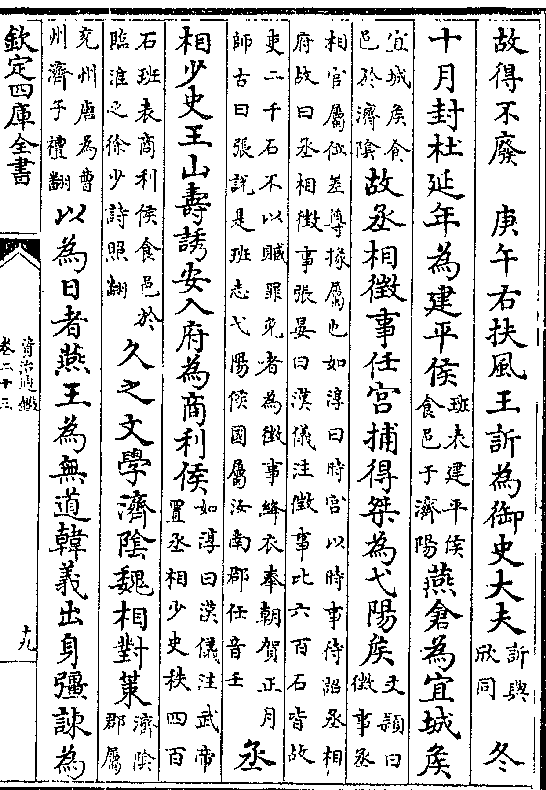 故得不廢　庚午右扶風王訢為御史大夫訢與欣同　冬
十月封杜延年為建平侯班表建平侯食邑于濟陽燕倉為宜城矦
宜城矦食邑於濟隂故丞相徵事任宫捕得桀為弋陽矦文頴曰徵事丞
相官屬位差尊掾屬也如淳曰時宫以時事待詔丞相
府故曰丞相徴事張晏曰漢儀注徵事比六百石皆故
吏二千石不以贓罪免者為徴事絳衣奉朝賀正月
師古曰張說是班志弋陽侯國屬汝南郡任音壬　丞
相少史王山壽誘安入府為商利侯如淳曰漢儀注武帝置丞相少史秩四百
石班表商利侯食邑於臨淮之徐少詩照翻　久之文學濟隂魏相對策濟隂郡屬
兖州唐為曹州濟子禮翻以為日者燕王為無道韓義出身彊諫為
欽定四庫全書
資治通鑑
卷二十三
十九